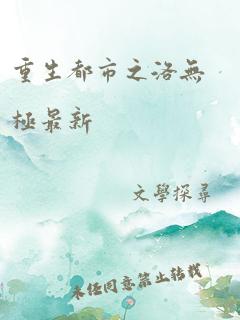 重生都市之洛無
極最新
文學探尋
未经同意禁止转载